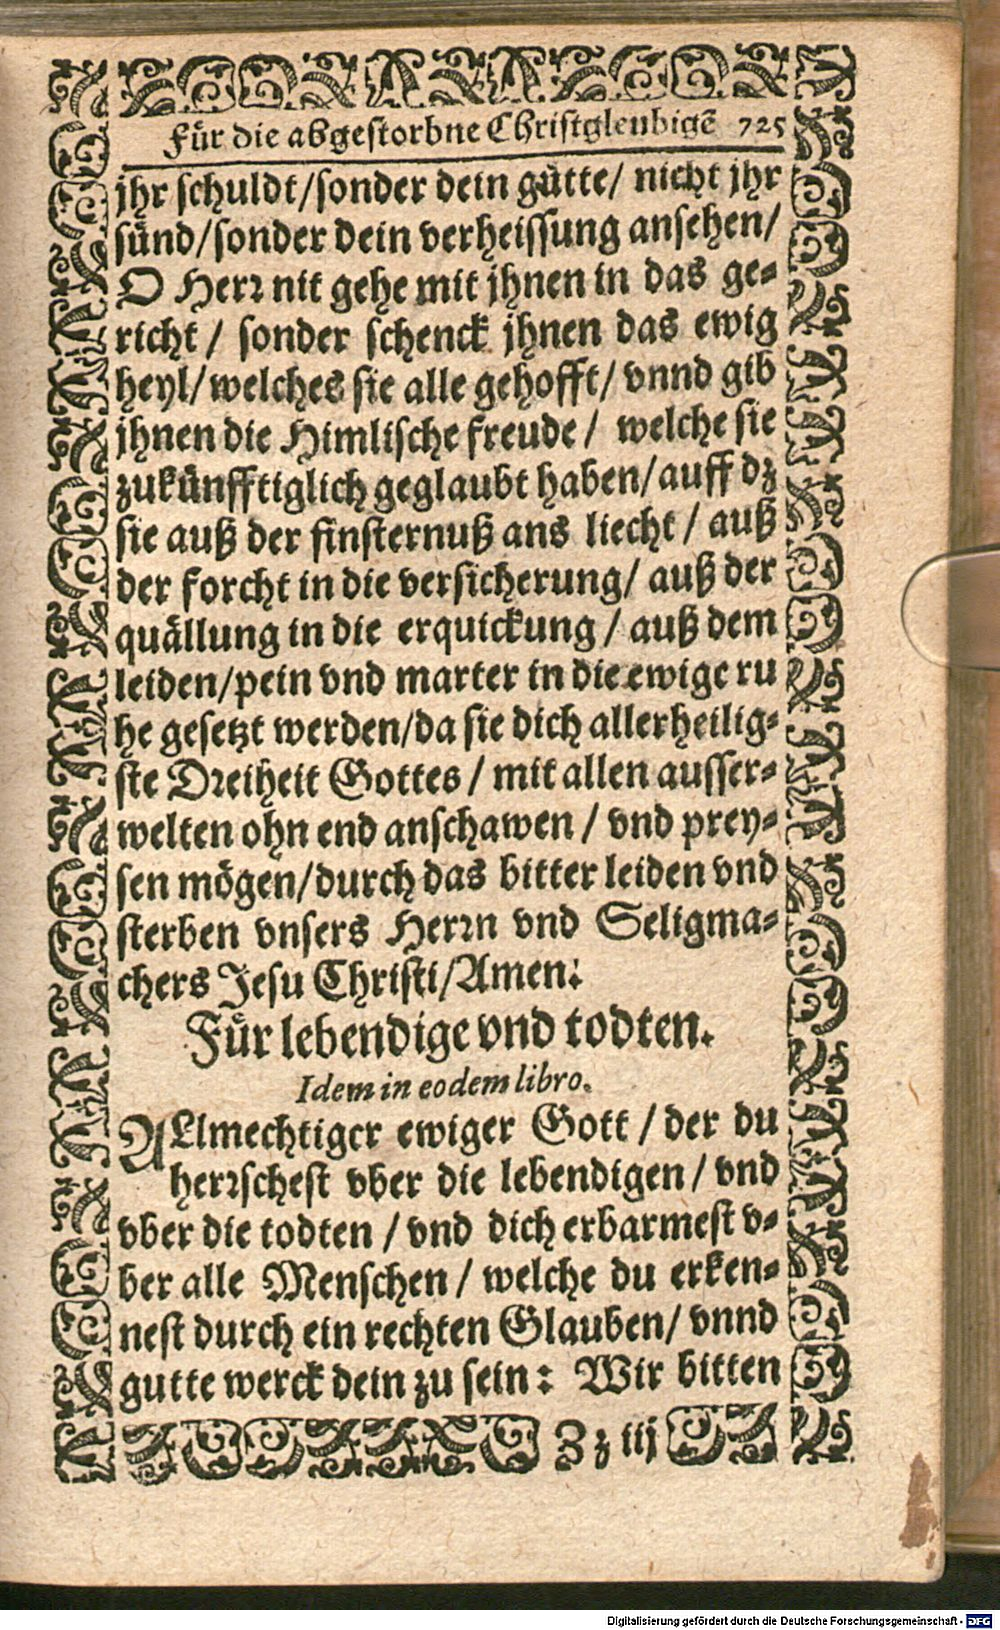 Für die abgestorbne Christgleubigẽ 725
jhr schuldt/sonder dein gütte/ nicht jhr
sünd/sonder dein verheissung ansehen/
O Herr nit gehe mit jhnen in das ge-
richt / sonder schenck jhnen das ewig
heyl/welches sie alle gehofft/ vnnd gib
jhnen die Himlische freude / welche sie
zukünfftiglich geglaubt haben/auff dz
sie auß der finsternuß ans liecht / auß
der forcht in die versicherung/ auß der
quällung in die erquickung / auß dem
leiden/pein vnd marter in die ewige ru
he gesetzt werden/da sie dich allerheilig-
ste Dreiheit Gottes / mit allen ausser-
welten ohn end anschawen / vnd prey-
sen mögen/durch das bitter leiden vnd
sterben vnsers Herrn vnd Seligma-
chers Jesu Christi/Amen.
Für lebendige vnd todten.
Idem in eodem libro.
ALlmechtiger ewiger Gott / der du
herrschest vber die lebendigen / vnd
vber die todten / vnd dich erbarmest v-
ber alle Menschen / welche du erken-
nest durch ein rechten Glauben/ vnnd
gutte werck dein zu sein: Wir bitten
Zz iij
Digitalisierung gefördert durch die Deutsche Forschungsgemeinschaft - DFG